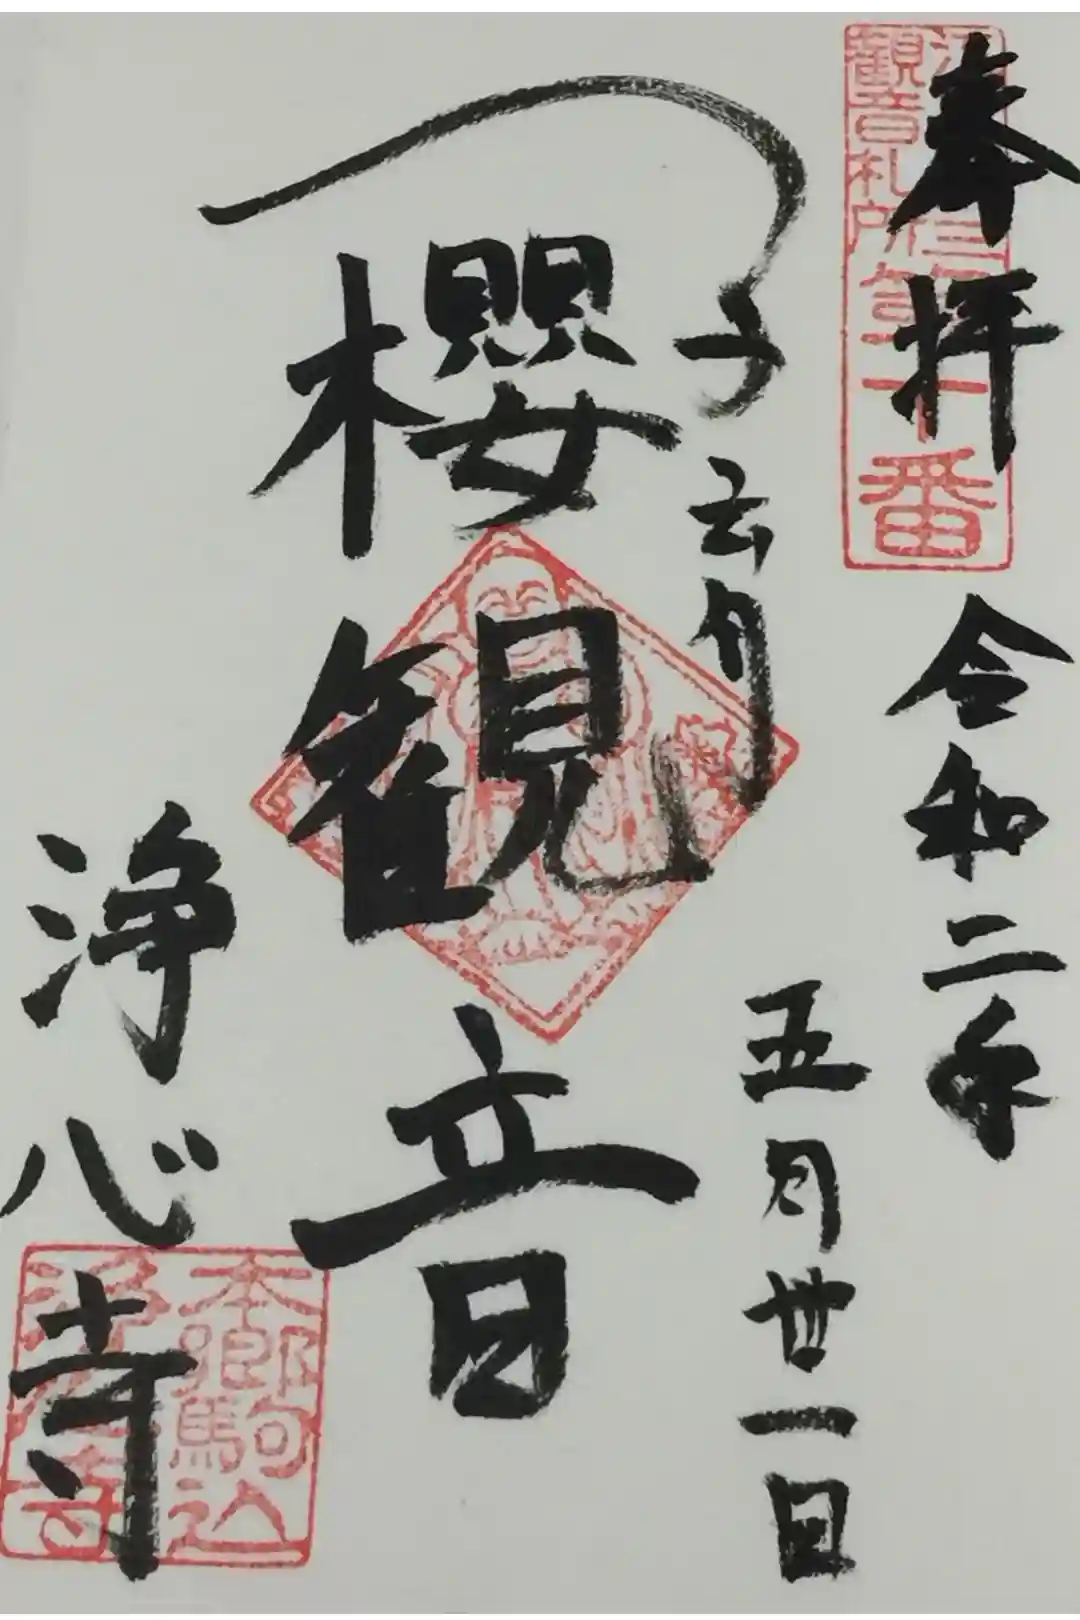 奉拝
観音札所
第十番
令和二年
五月廿一日
子育
櫻観音
浄心寺
本郷駒込